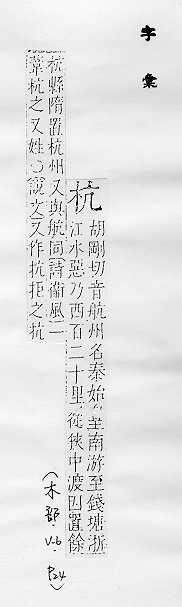 字彙
杭
胡剛切音航州名秦始皇南游至錢塘浙
江水惡乃西百二十里從狹中渡因置餘
杭縣隋置杭州又與航同詩衞風一
葦杭之又姓○說文又作抗拒之抗
(木部.V.6.P.24)